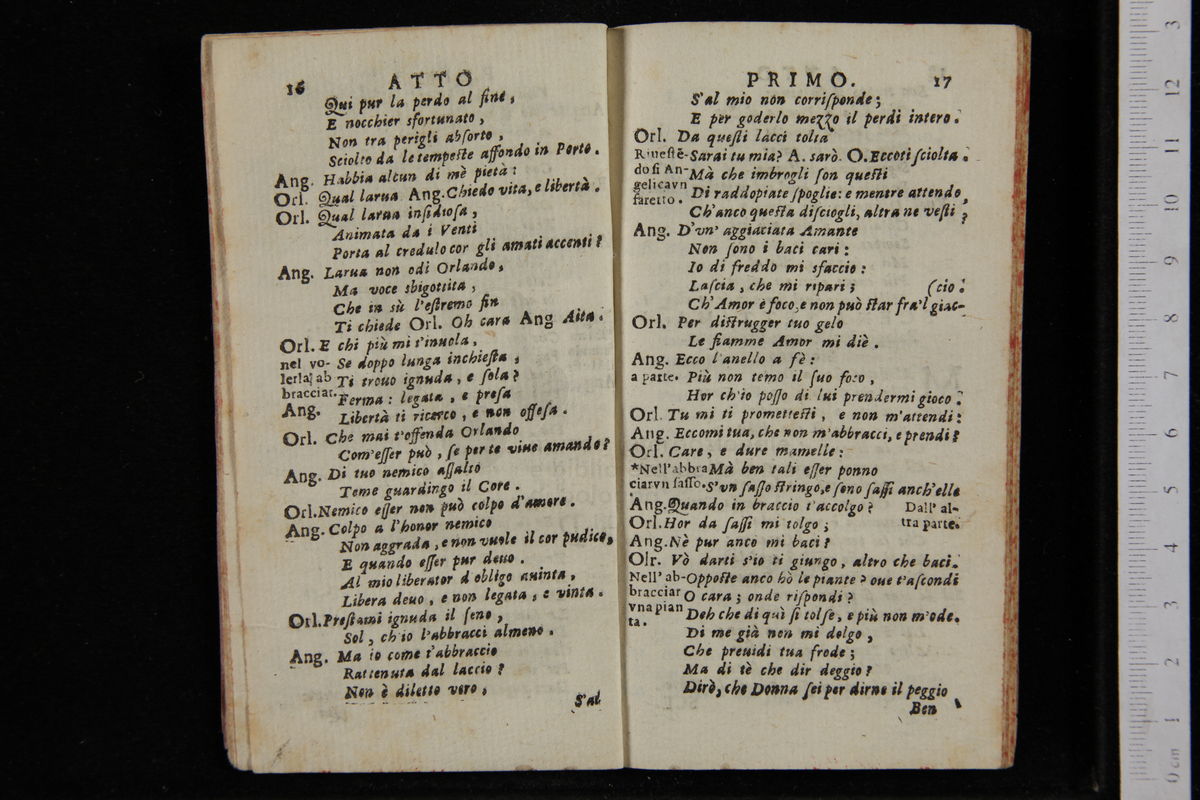 16 ATTO
Qui pur la perdo al fine,
E nocchier sfortunato,
Non tra perigli absorto,
Sciolto da le tempeste affondo in Porto.
Ang. Habbia alcun di mè pietà:
Orl. Qual larua Ang. Chiedo vita, e libertà.
Orl. Qual larua insidiosa,
Animata da i Venti
Porta al credulo cor gli amati accenti?
Ang. Larua non odi Orlando,
Ma voce sbigottita,
Che in sù l'estremo fin
Ti chiede Orl. Oh cara Ang Aita.
Orl. E chi più mi t'inuola,
nel vo- Se doppo lunga inchiesta,
lerla ab Ti trouo ignuda, e sola?
bracciar. Ferma: legata, e presa
Ang. Libertà ti ricerco, e non offesa.
Orl. Che mai t'offenda Orlando
Com'esser può, se per te viue amando?
Ang. Di tuo nemico assalto
Teme guardingo il Core.
Orl. Nemico esser non può colpo d'amore.
Ang. Colpo a l'honor nemico
Non aggrada, e non vuole il cor pudico,
E quando esser pur deuo.
Al mio liberator d obligo auinta,
Libera deuo, e non legata, e vinta.
Orl. Prestami ignuda il seno,
Sol, ch'io l'abbracci almeno.
Ang. Ma io come t'abbraccio
Rattenuta dal laccio?
Non è diletto vero,
S'al
PRIMO. 17
S'al mio non corrisponde;
E per goderlo mezzo il perdi intero.
Orl. Da questi lacci tolta
Riuestē- Sarai tu mia? A. sarò. O. Eccoti sciolta.
dosi An- Mà che imbrogli son questi
gelica vn Di raddopiate spoglie: e mentre attendo,
faretto. Ch'anco questa disciogli, altra ne vesti?
Ang. D'vn' aggiacciata Amante
Non sono i baci cari:
Io di freddo mi sfaccio:
Lascia, che mi ripari; (cio.
Ch' Amor è foco, e non può star fra'l giac-
Orl. Per distrugger tuo gelo
Le fiamme Amor mi diè.
Ang. Ecco l'anello a fè:
a parte. Più non temo il suo foco,
Hor ch'io posso di lui prendermi gioco.
Orl. Tu mi ti promettesti, e non m'attendi:
Ang. Eccomi tua, che non m'abbracci, e prendi?
Orl. Care, e dure mamelle:
*Nell'abbra Mà ben tali esser ponno
ciar vn sasso. S'vn sasso stringo, e seno sassi anch'elle
Ang. Quando in braccio t'accolgo? Dall' al-
Orl. Hor da sassi mi tolgo; tra parte.
Ang. Nè pur anco mi baci?
Olr. Vò darti s'io ti giungo, altro che baci.
Nell' ab- Opposte anco hò le piante? oue t'ascondi
bracciar O cara; onde rispondi?
vna pian Deh che di quì si tolse, e più non m'ode.
ta. Di me già non mi dolgo,
Che preuidi tua frode;
Ma di tè che dir deggio?
Dirò, che Donna sei per dirne il peggio
Ben